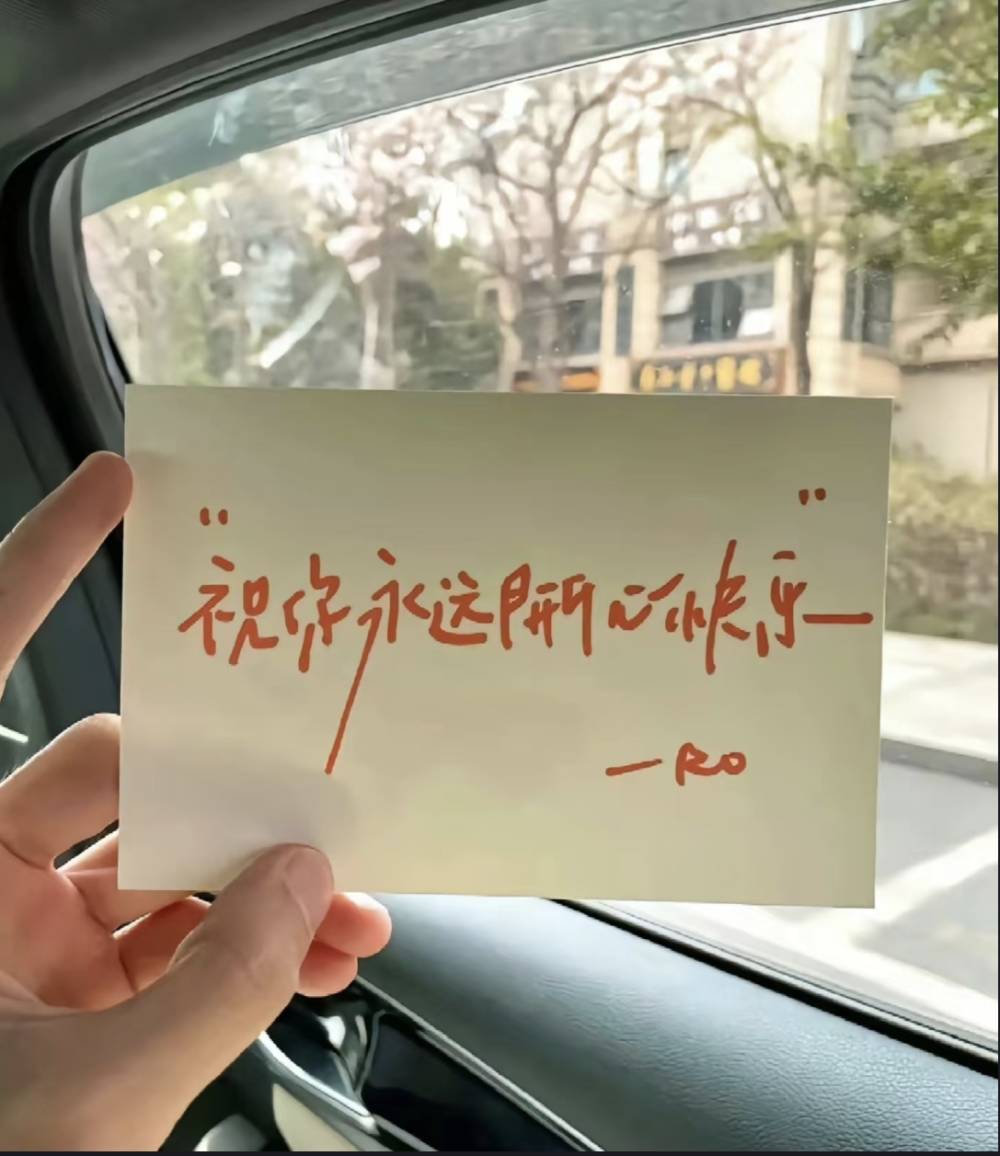 “祝你永远开心快乐”
—RO